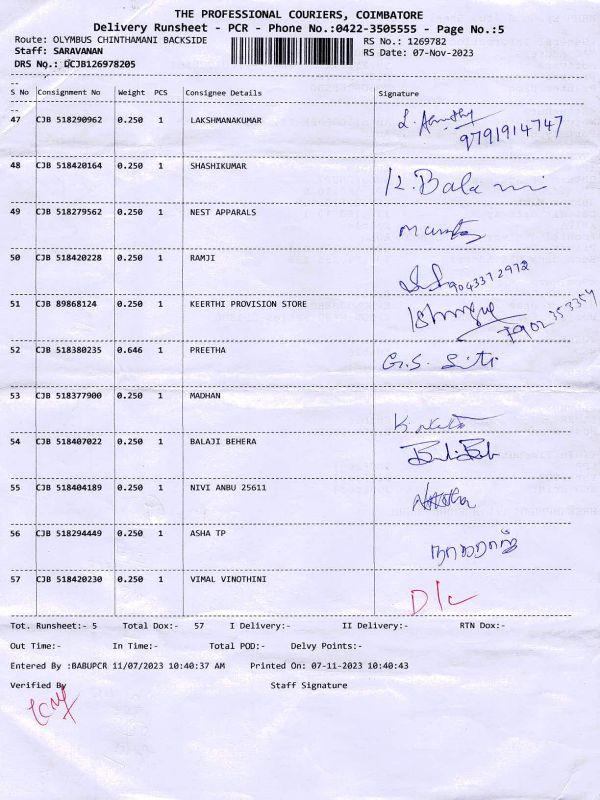 THE PROFESSIONAL COURIERS, COIMBATORE
Delivery Runsheet - PCR - Phone No.:0422-3505555 - Page No.:5
Route: OLYMBUS CHINTHAMANI BACKSIDE RS No.: 1269782
Staff: SARAVANAN RS Date: 07-Nov-2023
DRS No.: DCJB126978205
S No Consignment No Weight PCS Consignee Details Signature
47 CJB 518290962 0.250 1 LAKSHMANAKUMAR
9791914747
48 CJB 518420164 0.250 1 SHASHIKUMAR K. Balamani
49 CJB 518279562 0.250 1 NEST APPARALS
50 CJB 518420228 0.250 1 RAMJI 9043372972
51 CJB 89868124 0.250 1 KEERTHI PROVISION STORE 7902353354
52 CJB 518380235 0.646 1 PREETHA G.S.
53 CJB 518377900 0.250 1 MADHAN
54 CJB 518407022 0.250 1 BALAJI BEHERA
55 CJB 518404189 0.250 1 NIVI ANBU 25611
56 CJB 518294449 0.250 1 ASHA TP
57 CJB 518420230 0.250 1 VIMAL VINOTHINI D/C
Tot. Runsheet:- 5 Total Dox:- 57 I Delivery:- II Delivery:- RTN Dox:-
Out Time:- In Time:- Total POD:- Delvy Points:-
Entered By :BABUPCR 11/07/2023 10:40:37 AM Printed On: 07-11-2023 10:40:43
Verified By Staff Signature